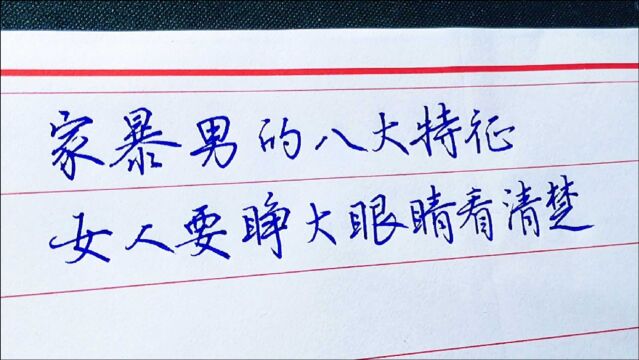 家暴男的八大特征
女人要睁大眼睛看清楚